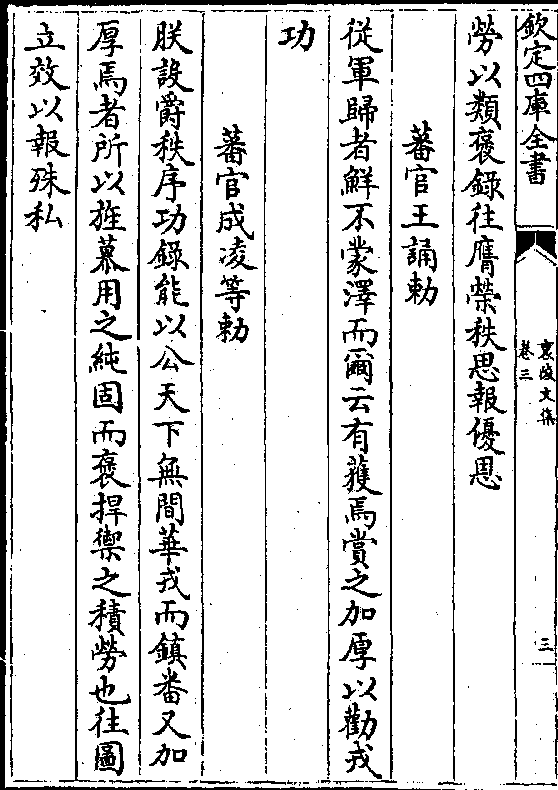 欽定四庫全書
襄陵文集
卷三
三
勞以類褒錄往膺榮秩思報優恩
蕃官王誦勅
從軍歸者鮮不蒙澤而爾云有獲焉賞之加厚以勸戎
功
蕃官成凌等勅
朕設爵秩序功錄能以公天下無間華戎而鎮畨又加
厚焉者所以旌慕用之純固而褒捍禦之積勞也往圖
立效以報殊私